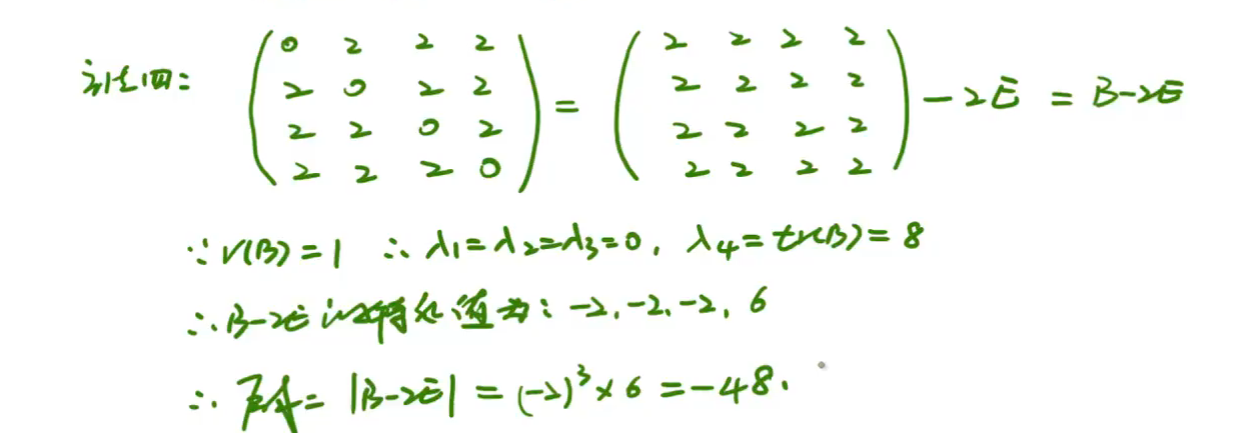 法四:
0 2 2 2   2 2 2 2
2 0 2 2   2 2 2 2
= - 2E = B-2E
2 2 0 2   2 2 2 2
2 2 2 0   2 2 2 2
∵ r(B)=1 ∴ λ1=λ2=λ3=0, λ4=tr(B)=8
∴ B-2E 的特征值为: -2, -2, -2, 6
∴ 原式= |B-2E| = (-2)³×6 = -48.